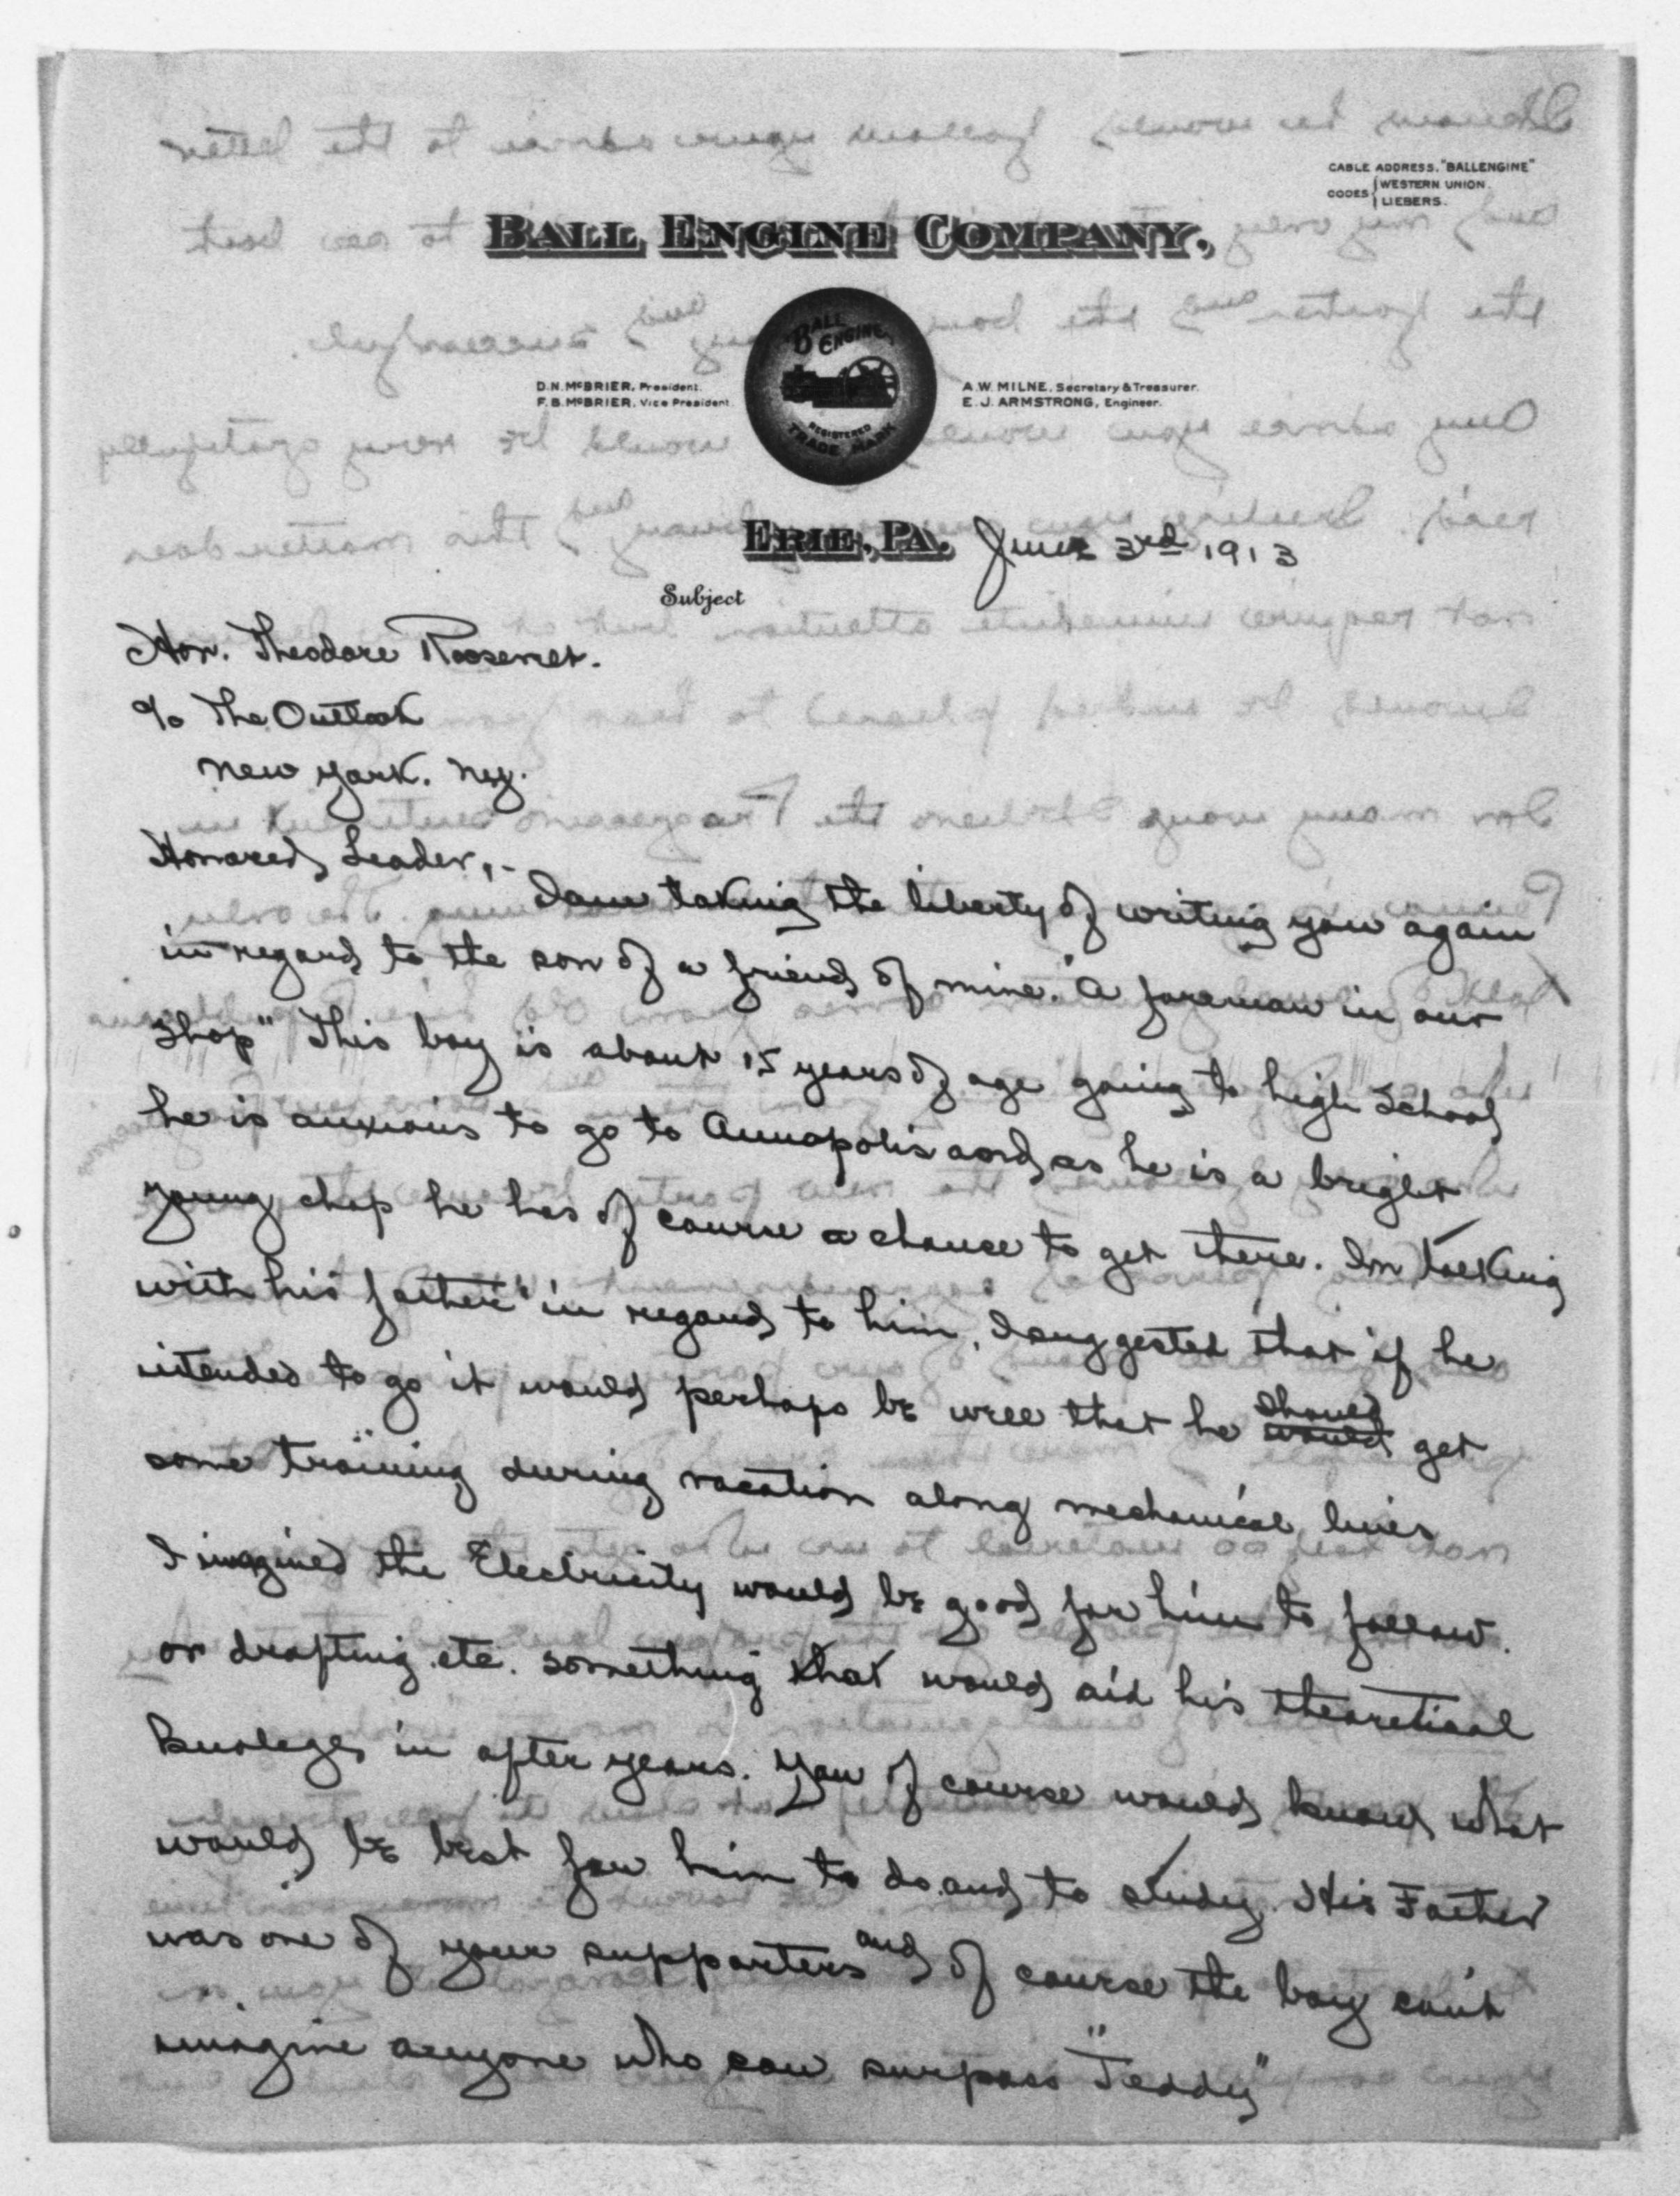 CABLE ADDRESS, "BALLENGINE"
CODES { WESTERN UNION.
LIEBERS.
BALL ENGINE COMPANY,
"BALL ENGINE"
REGISTERED
TRADE MARK
D.N. McBRIER, President.
F.B. McBRIER, Vice President.
A.W. MILNE, Secretary & Treasurer.
E.J. ARMSTRONG, Engineer.
ERIE, PA. June 3rd 1913
Subject
Hon. Theodore Roosevelt.
c/o The Outlook
New York. N.Y.
Honored Leader,-
I am taking the liberty of writing you again
in regard to the son of a friend of mine. "A foreman in our
Shop" This boy is about 15 years of age going to high School
he is anxious to go to Annapolis and as he is a bright
young chap he has of course a chance to get there. In talking
with his father in regard to him, I suggested that if he
intended to go it would perhaps be well that he should would get
some training during vacation along mechanical lines
I imagined the Electricity would be good for him to follow.
or drafting etc. something that would aid his theoretical
knowlege, in after years. You of course would know what
would be best for him to do and to study. His Father
was one of your supporters and of course the boy can't
imagine anyone who can surpass "Teddy"